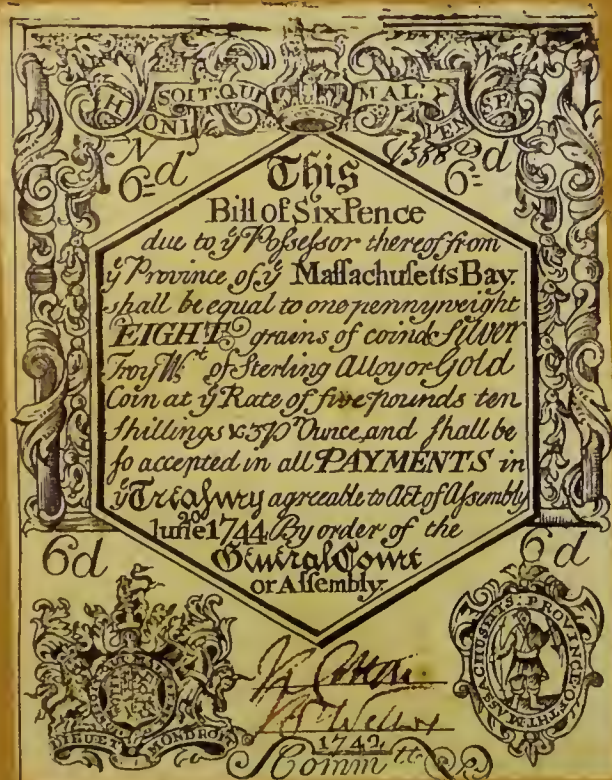 HONI SOIT: QUI MAL: Y PENSE
N (388 D
6=d 6=d
This
Bill of Six Pence
due to yͤ Poſseſsor thereof from
yͤ Province of yͤ Maſſachuſetts Bay.
ſhall be equal to one pennyweight
EIGHT grains of coind Silver
Troy Wᵗ of Sterling Alloy or Gold
Coin at yͤ Rate of five pounds ten
ſhillings & 3 Pʳ Ounce, and ſhall be
ſo accepted in all PAYMENTS in
yͤ Treaſury agreeable to Act of Aſsembly
20
June 1744 By order of the
General Court
or Aſſembly.
6d 6d
DIEU ET MONDROIT
MASSACHUSETS: PROVINCE OF THE
1742
Commᵗᵗᵉᵉ